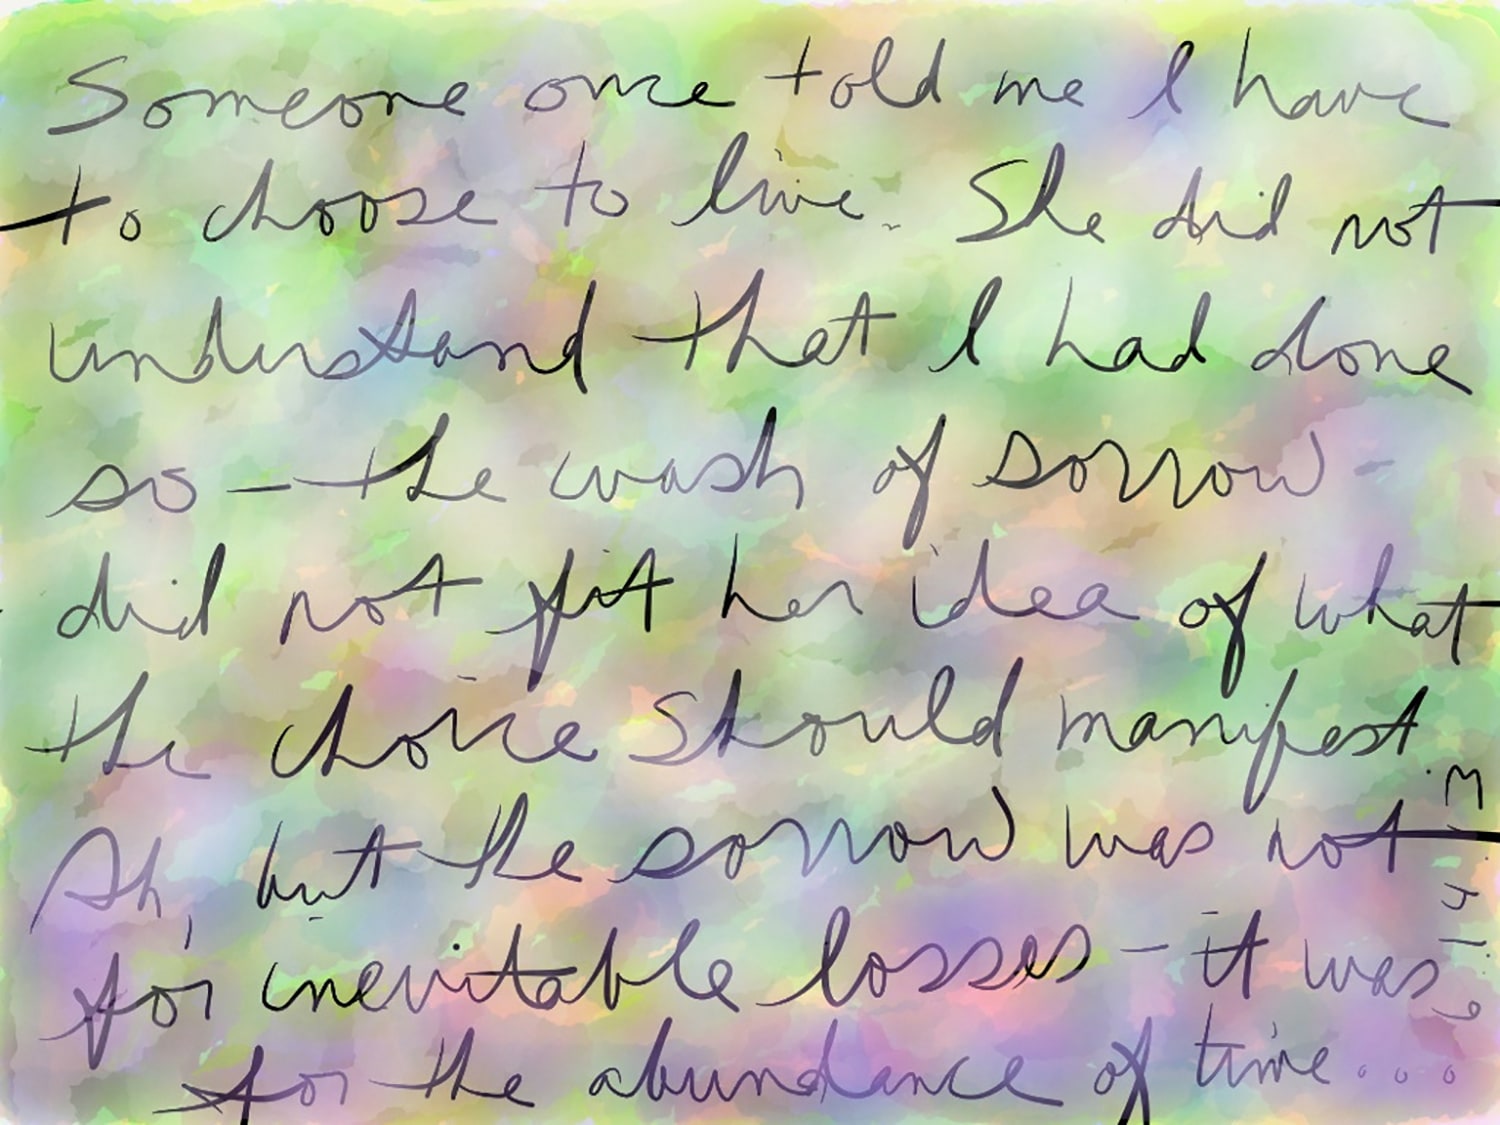 Someone once told me I have
to choose to live. She did not
understand that I had done
so - the wash of sorrow -
did not fit her idea of what
the choice should manifest.
Ah, but the sorrow was not
for inevitable losses - it was
for the abundance of time...